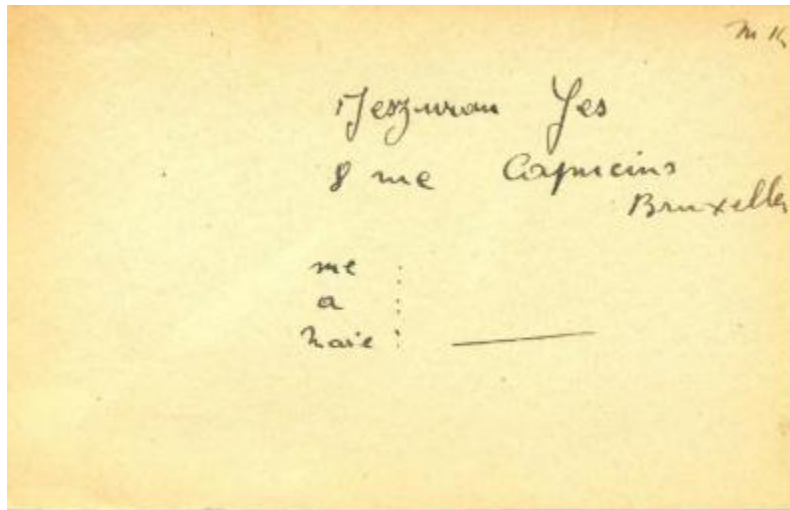 M K
Meszuran Yes
8 rue Capucins
Bruxelles
né :
a :
Marié : ———